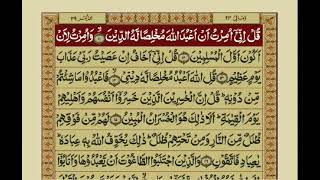 وَمَالِیَ ٢٣ الزُّمَر ٣٩
قُلْ اِنِّیْۤ اُمِرْتُ اَنْ اَعْبُدَ اللّٰهَ مُخْلِصًا لَّهُ الدِّیْنَ ۝ وَاُمِرْتُ لِاَنْ
اَكُوْنَ اَوَّلَ الْمُسْلِمِیْنَ ۝ قُلْ اِنِّیْۤ اَخَافُ اِنْ عَصَیْتُ رَبِّیْ عَذَابَ
یَوْمٍ عَظِیْمٍ ۝ قُلِ اللّٰهَ اَعْبُدُ مُخْلِصًا لَّهٗ دِیْنِیْ ۝ فَاعْبُدُوْا مَا شِئْتُمْ
مِّنْ دُوْنِهٖ ؕ قُلْ اِنَّ الْخٰسِرِیْنَ الَّذِیْنَ خَسِرُوْۤا اَنْفُسَهُمْ وَاَهْلِیْهِمْ
یَوْمَ الْقِیٰمَةِ ؕ اَلَا ذٰلِكَ هُوَ الْخُسْرَانُ الْمُبِیْنُ ۝ لَهُمْ مِّنْ فَوْقِهِمْ
ظُلَلٌ مِّنَ النَّارِ وَمِنْ تَحْتِهِمْ ظُلَلٌ ؕ ذٰلِكَ یُخَوِّفُ اللّٰهُ بِهٖ
عِبَادَهٗ ؕ یٰعِبَادِ فَاتَّقُوْنِ ۝ وَالَّذِیْنَ اجْتَنَبُوا الطَّاغُوْتَ اَنْ یَّعْبُدُوْهَا وَاَنَابُوْۤا